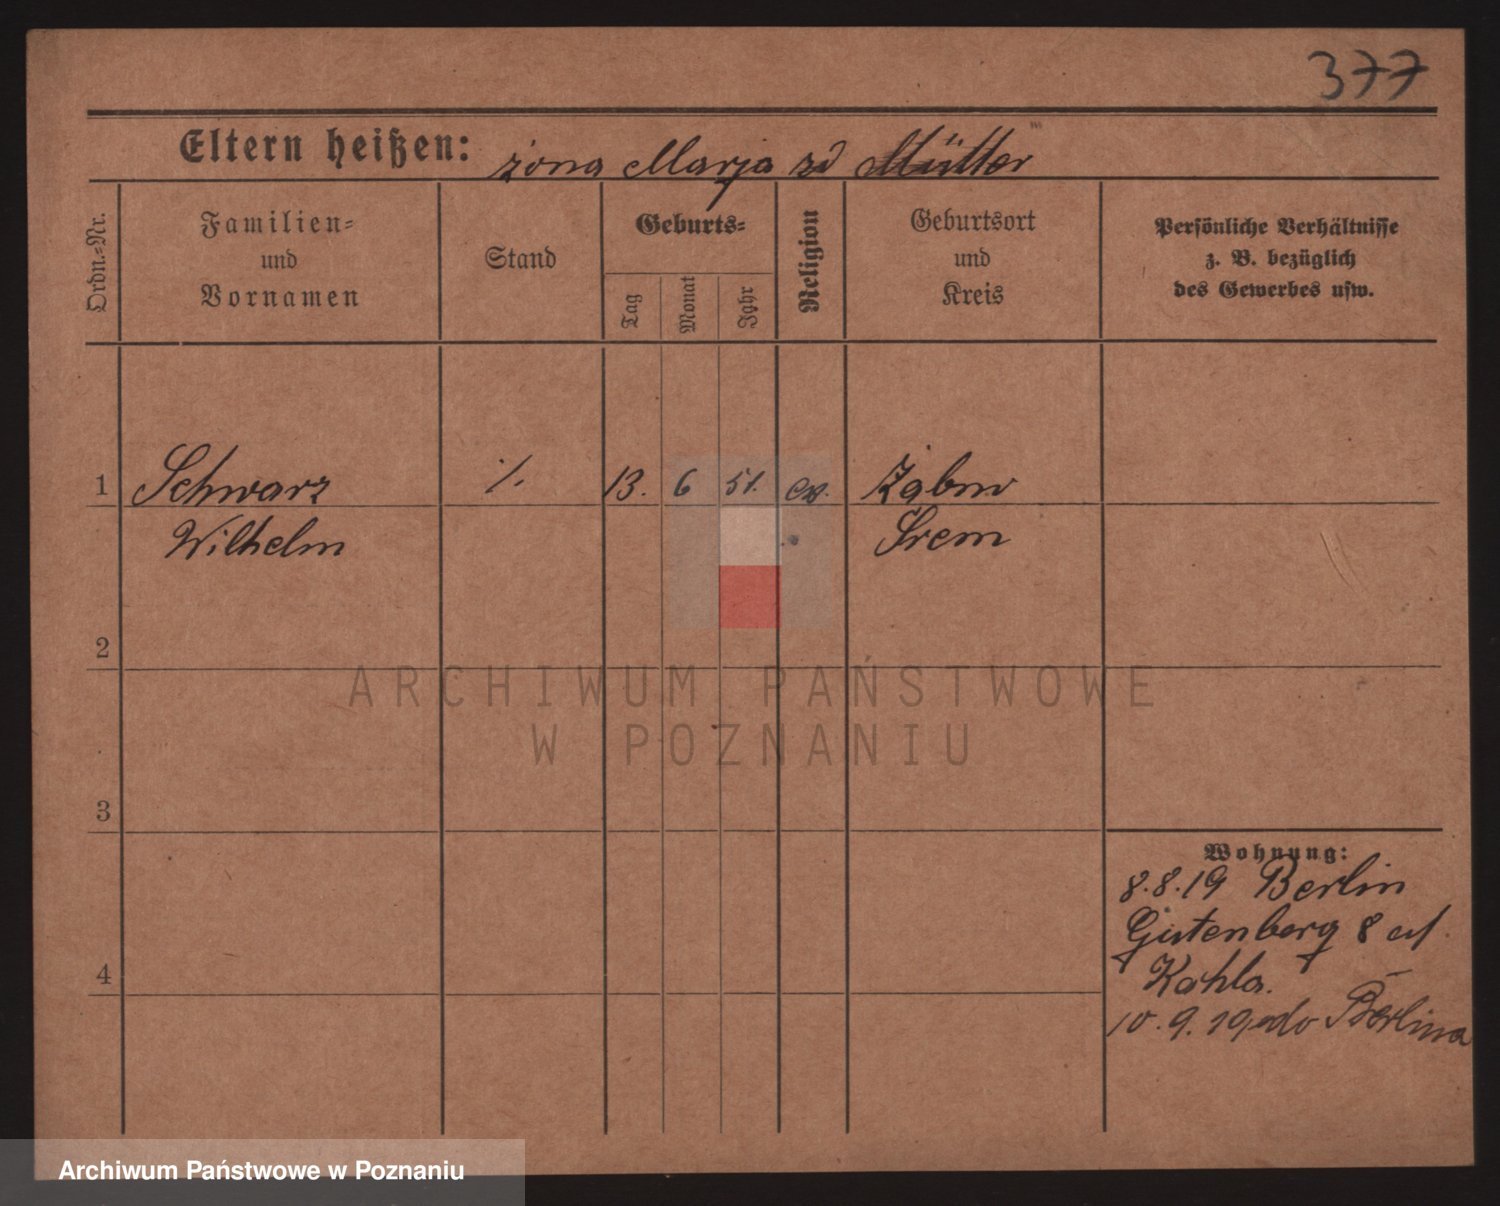 377
Eltern heißen: żona Marja zd Müller
Ordn.=Nr.
Familien=
und
Vornamen
Stand
Geburts=
Tag
Monat
Jahr
Religion
Geburtsort
und
Kreis
Persönliche Verhältnisse
z. B. bezüglich
des Gewerbes usw.
1 Schwarz ./. 13. 6 51. ew. Żabno
Wilhelm Śrem
2
3
4
Wohnung:
8.8.19 Berlin
Gutenberg 8
Kahla.
10.9.19 do Berlina
ARCHIWUM PAŃSTWOWE
W POZNANIU
Archiwum Państwowe w Poznaniu